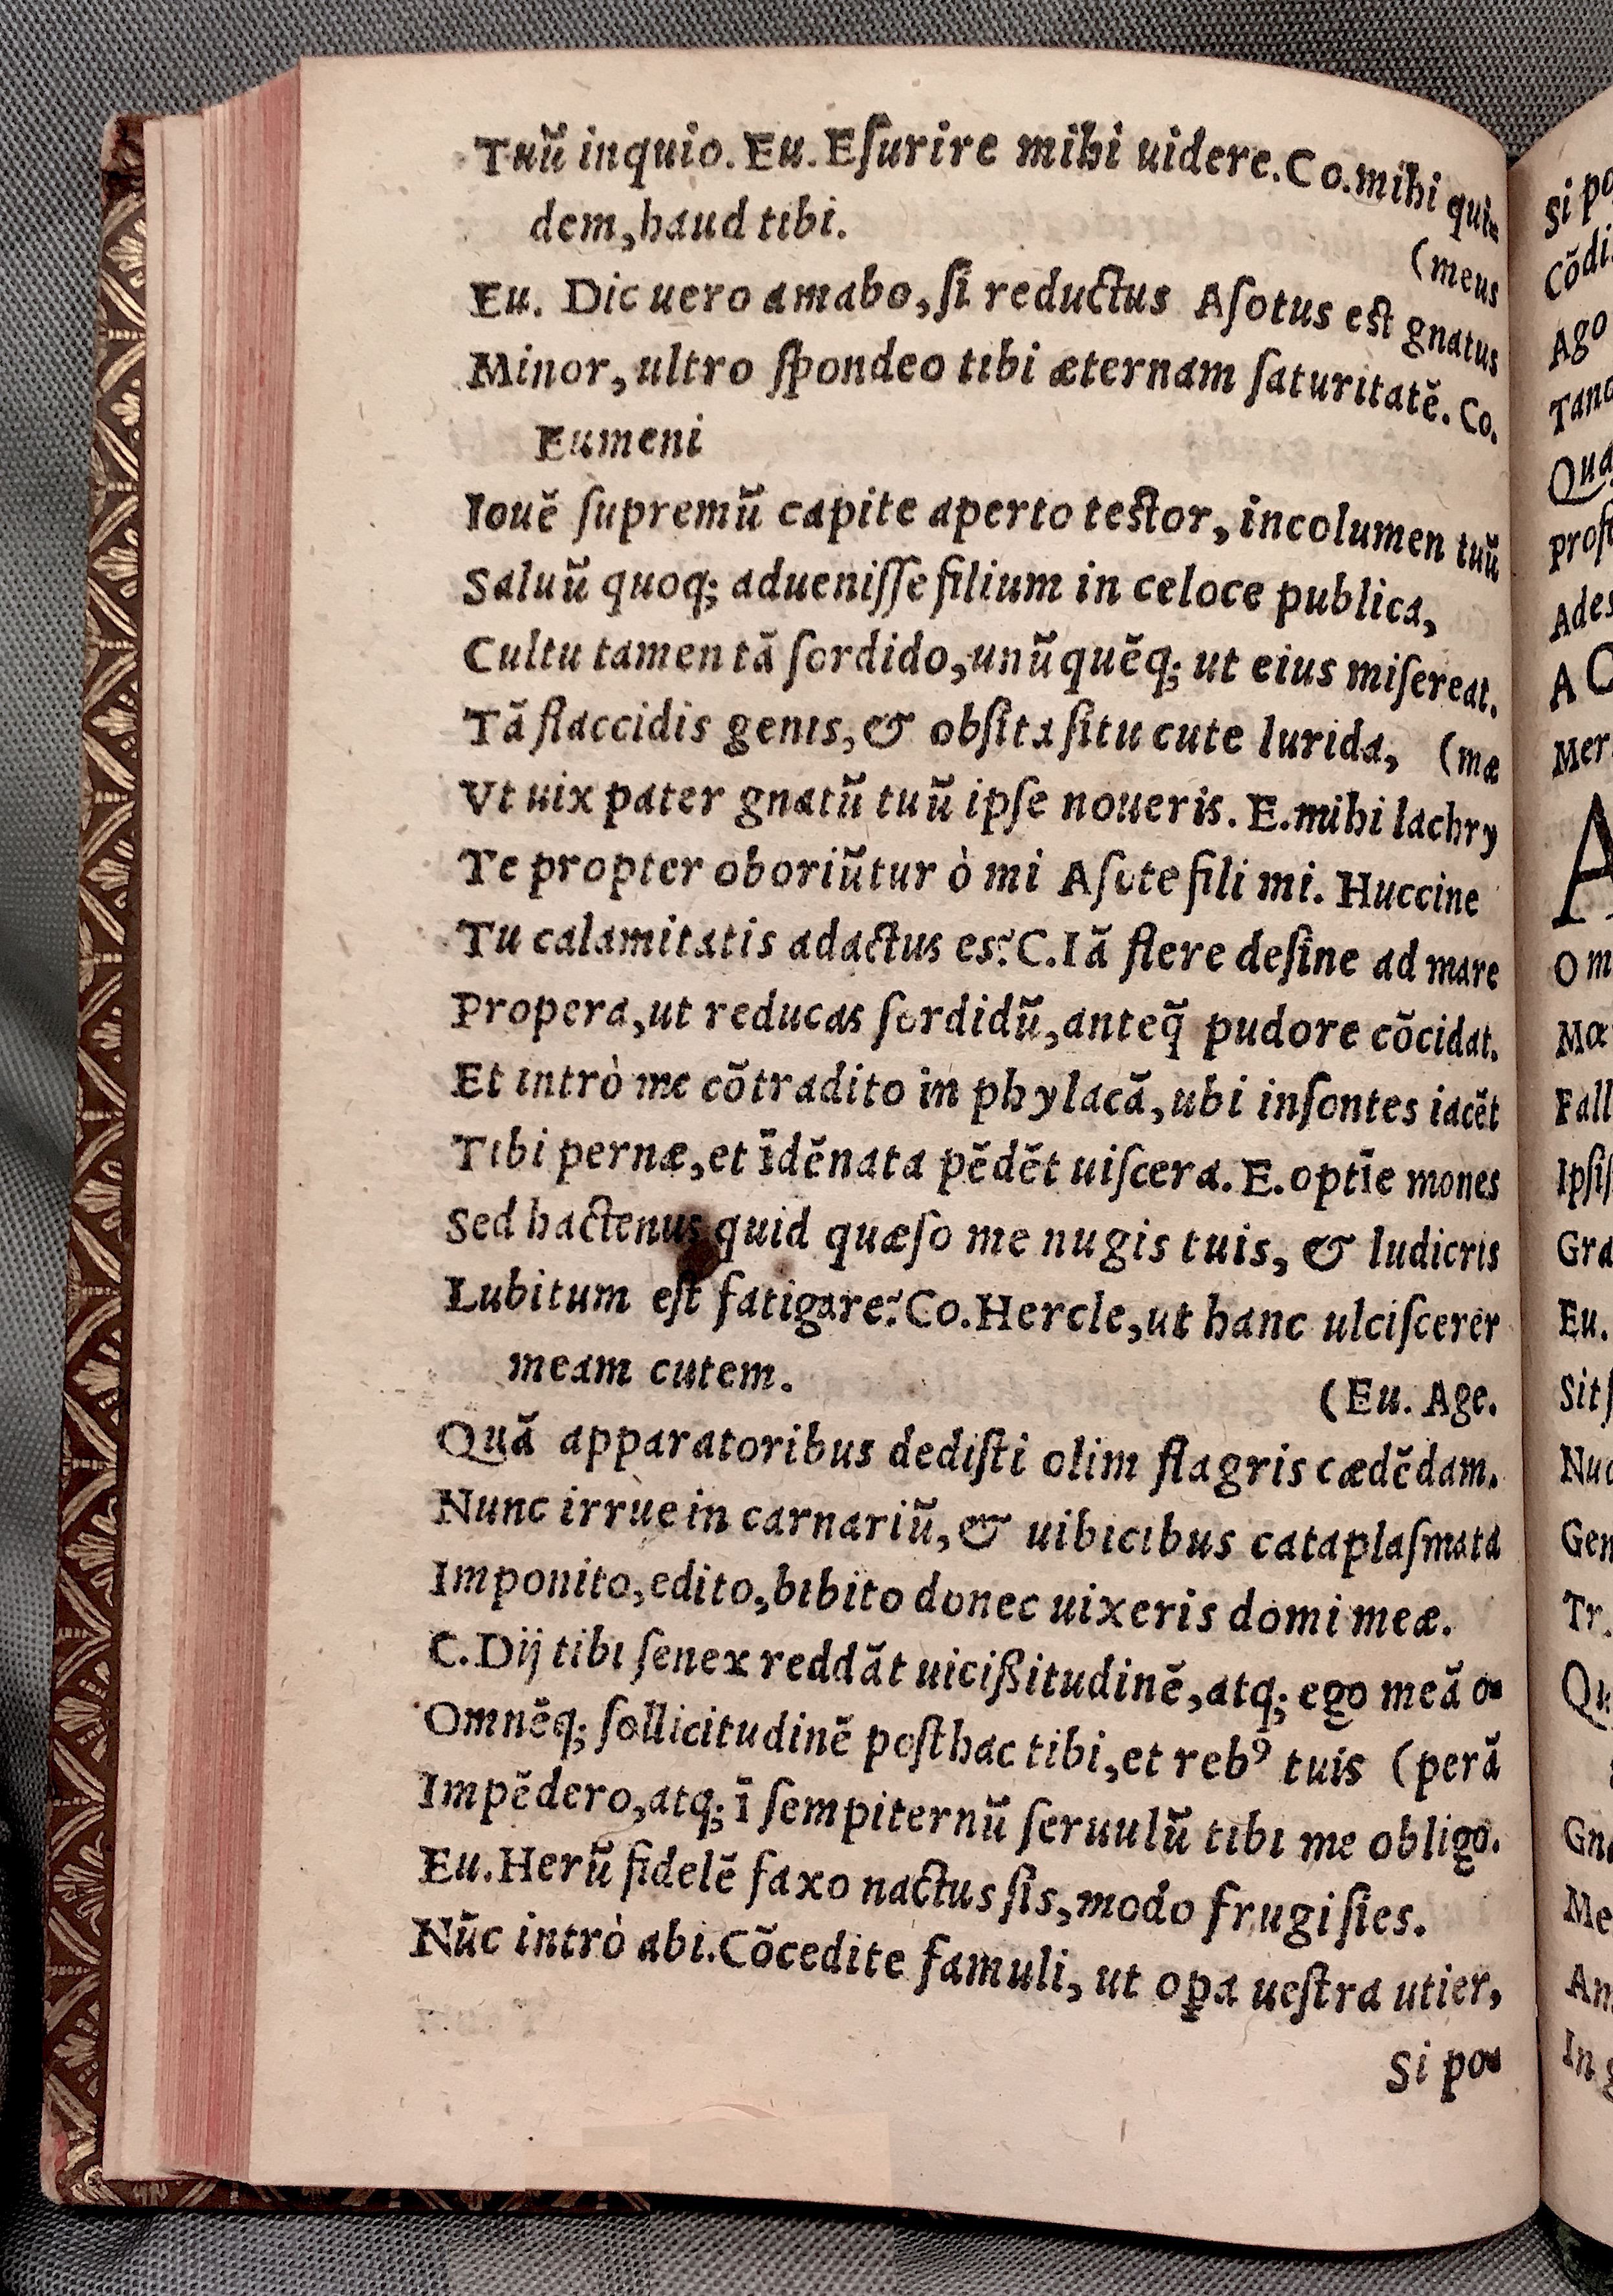 Tuũ inquio. Eu. Eſurire mihi uidere. Co. mihi qui-
dem, haud tibi.
(meus
Eu. Dic uero amabo, ſi reductus Aſotus eſt gnatus
Minor, ultro ſpondeo tibi æternam ſaturitatẽ. Co.
Eumeni
Iouẽ ſupremũ capite aperto teſtor, incolumen tuũ
Saluũ quoq; adueniſſe filium in celoce publica,
Cultu tamen tã ſordido, unũquẽq; ut eius miſereat.
Tã flaccidis genis, & obſita ſitu cute lurida, (mæ
Vt uix pater gnatũ tuũ ipſe noueris. E. mihi lachry
Te propter oboriũtur ò mi Aſote fili mi. Huccine
Tu calamitatis adactus es? C. Iã flere deſine ad mare
Propera, ut reducas ſordidũ, anteq̃ pudore cõcidat.
Et intrò me cõtradito in phylacã, ubi inſontes iacẽt
Tibi pernæ, et ĩdẽnata pẽdẽt uiſcera. E. optĩe mones
Sed hactenus quid quæſo me nugis tuis, & ludicris
Lubitum eſt fatigare? Co. Hercle, ut hanc ulciſcerer
meam cutem.
(Eu. Age.
Quã apparatoribus dediſti olim flagris cædẽdam.
Nunc irrue in carnariũ, & uibicibus cataplaſmata
Imponito, edito, bibito donec uixeris domi meæ.
C. Dij tibi ſenex reddãt uicißitudinẽ, atq; ego meã o-
Omnẽq; ſollicitudinẽ poſthac tibi, et rebꝰ tuis (perã
Impẽdero, atq; ĩ ſempiternũ ſeruulũ tibi me obligo.
Eu. Herũ fidelẽ faxo nactus ſis, modo frugi ſies.
Nũc intrò abi. Cõcedite famuli, ut oꝑa ueſtra utier,
Si po-